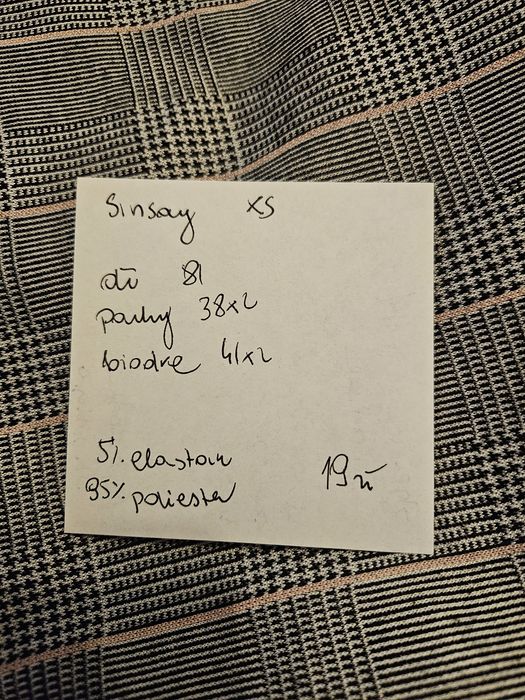 Sinsay XS
dł 81
pachy 38x2
biodra 41x2
5%. elastan
95% poliester
19 zł